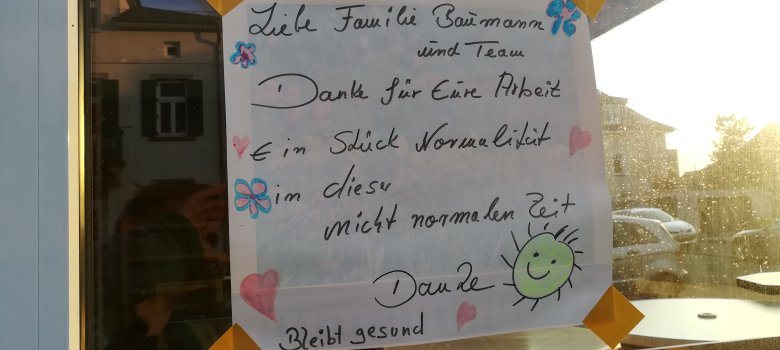 Liebe Familie Baumann
und Team
Danke für Eure Arbeit
Ein Stück Normalität
in dieser
nicht normalen Zeit
Danke
Bleibt gesund